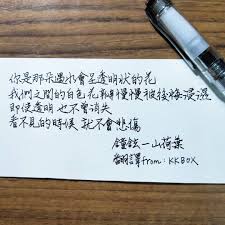 你是那朵遇水會呈透明狀的花
我們之間的白色花瓣慢慢被後悔浸濕
即使透明 也不會消失
看不見的時候 就不會悲傷
鐘鉉—山荷葉
翻譯from:KKBOX